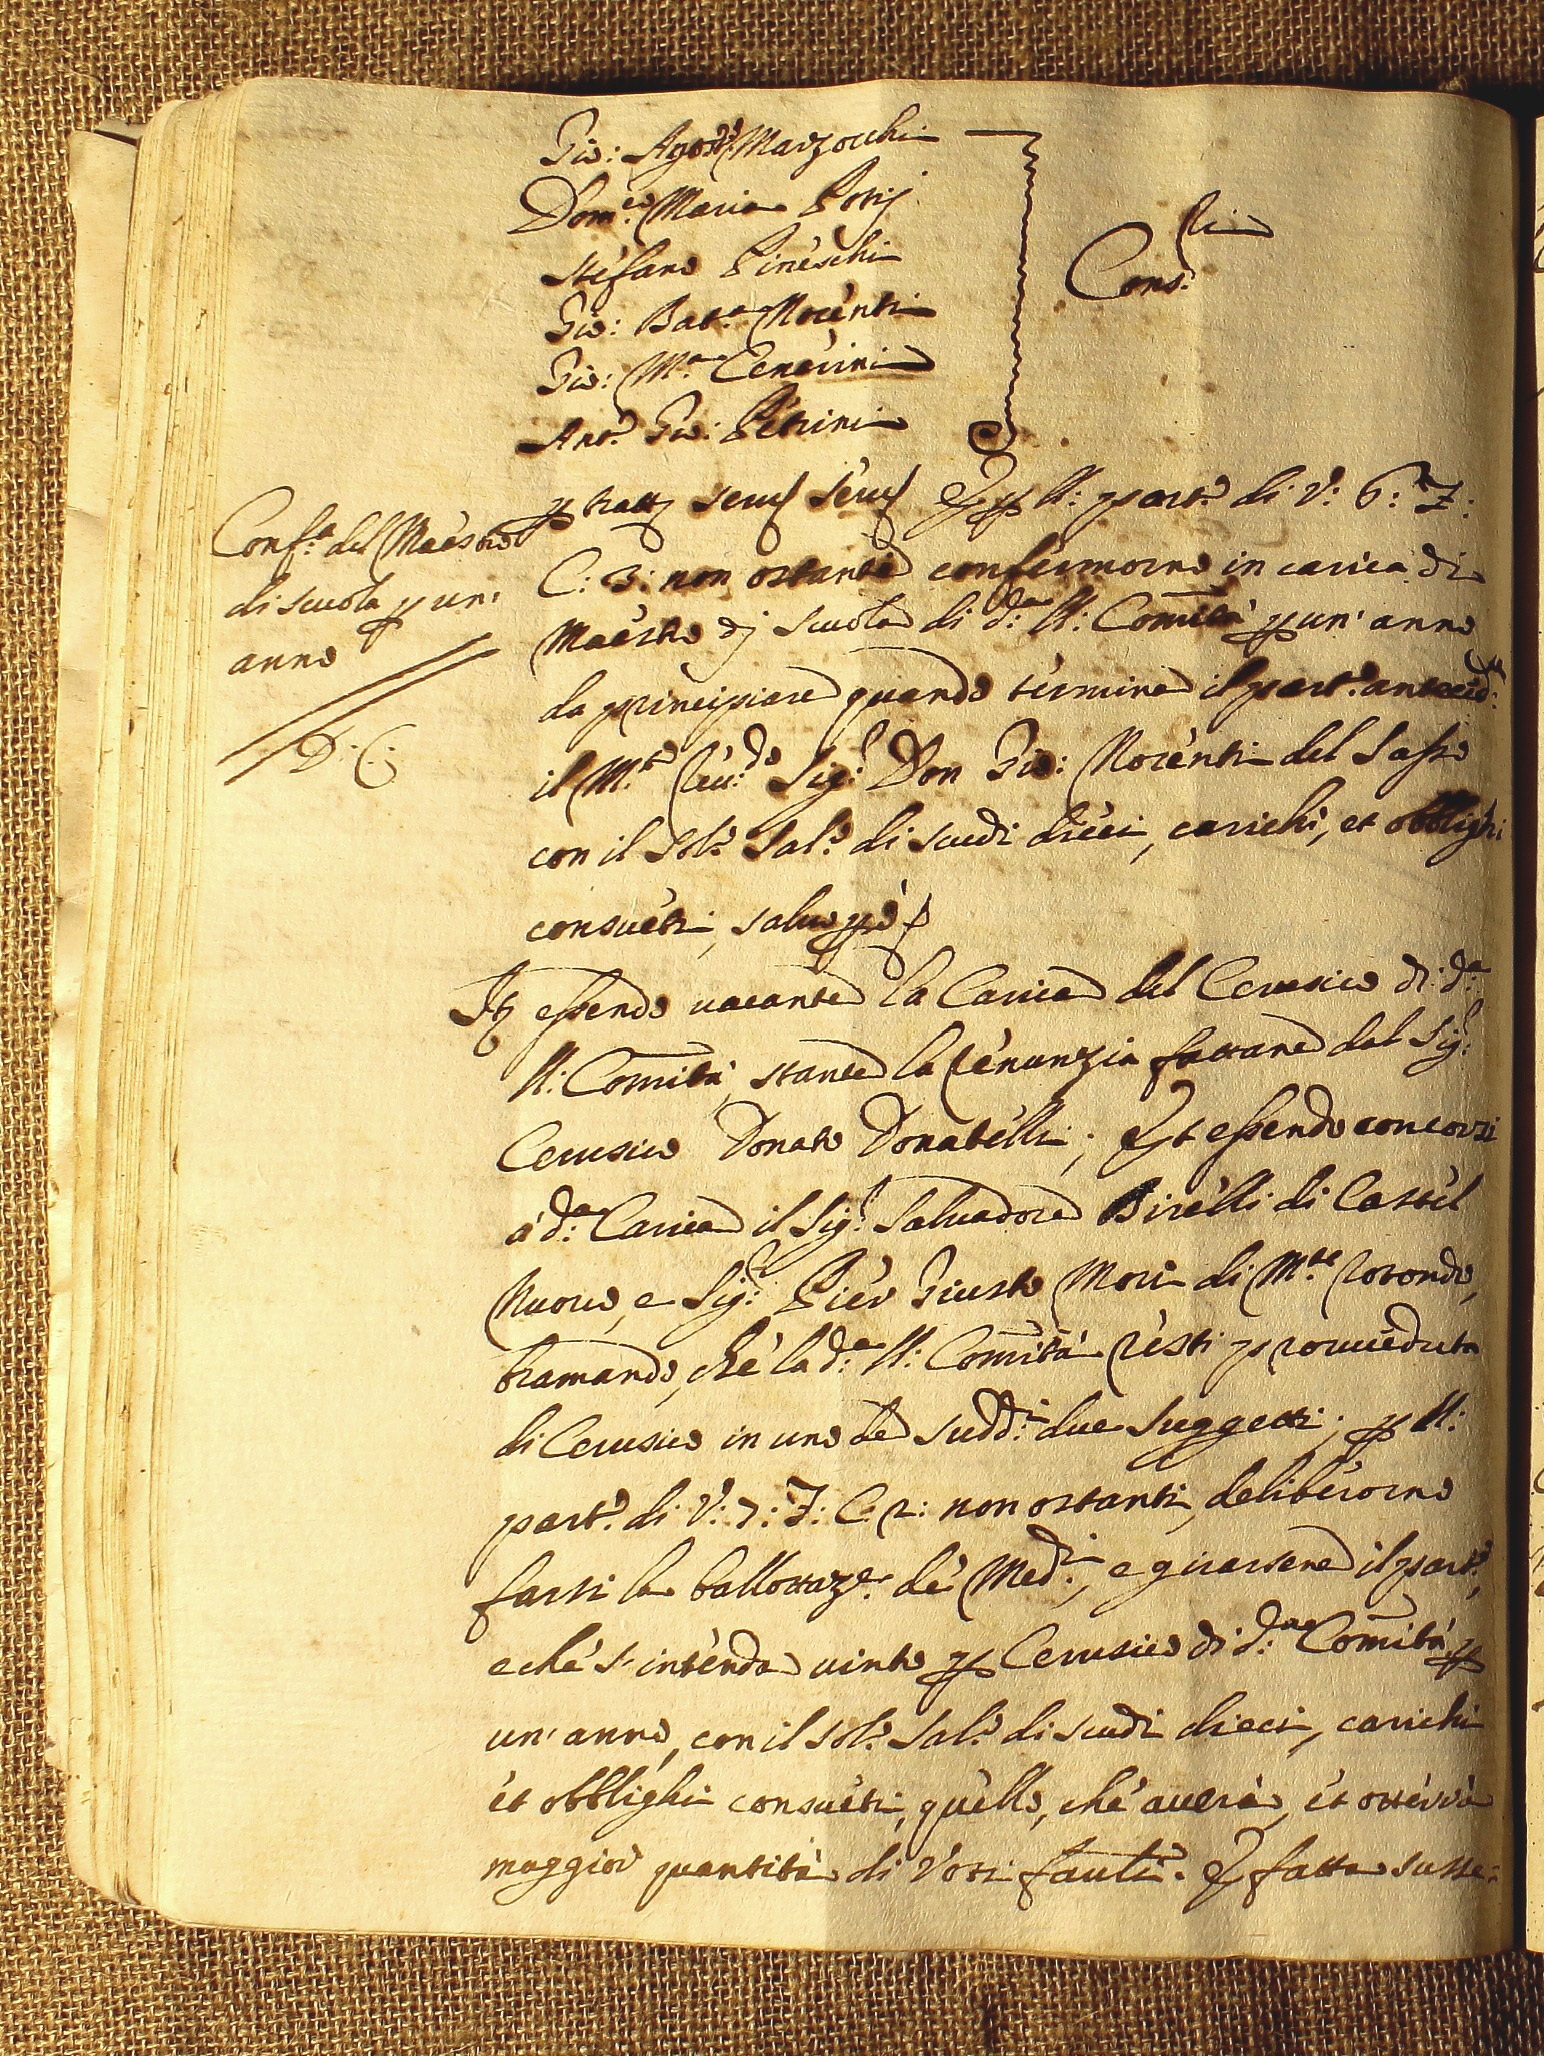 Gio: Agost.º Marzocchi
Dom.co Maria Porij
Stefano Pineschi
Gio: Batt.a Nocenti
Gio: M.a Cenerini
Ant.º Gio: Petrini
Cons.ri
Conf.a del Maestro
di scuola p un'
anno
D. C.
p tratt servs servs Et p ll: part.º di V: 6: F:
C: 3: non ostante confermorno in carica di
Maestro di scuola di d.a ll: Comità p un' anno
da principiare quando termina il part.º anteced.te
il M.to Reu.do Sig.r Don Gio: Nocenti del Sasso
con il sol.º sal.º di scudi dieci, carichi, et obblighi
consueti, saluo
It essendo uacante la Carica del Cerusico di d.a
ll: Comità, stante la renunzia fattane dal Sig.r
Cerusico Donato Donatelli; Et essendo concorsi
á d.a Carica il Sig.r Saluadore Birelli di Castel
Nuouo, e Sig.r Pier Giusto Mori di M.te rotondo,
bramando, ché la d.a ll: Comità resti proueduta
di Cerusico in uno de sudd.i due suggetti; p ll:
part.º di V: 7: F: C: 2: non ostanti, deliberorno
farsi la ballottaz.e de Med.i, e girarsene il part.º,
e ché s' intenda uinto p Cerusico di d.a Comità p
un' anno, con il sol.º sal.º di scudi dieci, carichi
et obblighi consueti, quello, ché auerà, et otterrà
maggior quantità di Voti fauli. E fatta susse: